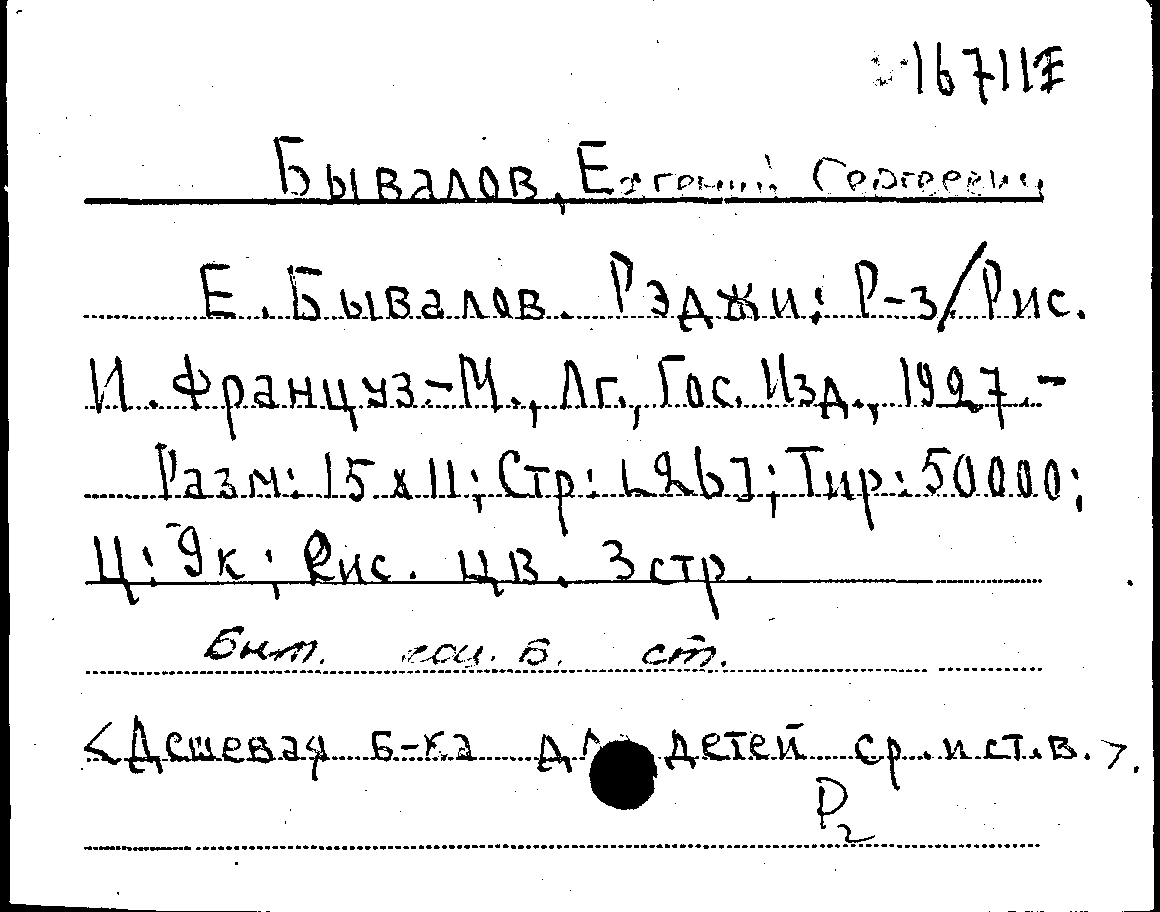 16711E
Бывалов, Евгений Сергеевич
Е. Бывалов. Рэджи: Р-з/Рис.
И. Француз.-М., Лг., Гос. Изд., 1927.-
Разм: 15x11; Стр: [26]; Тир: 50000;
Ц: 9к; Рис. цв. 3 стр.
соц. б. ст.
<Дешевая б-ка для детей ср. и ст. в.>.
Р2